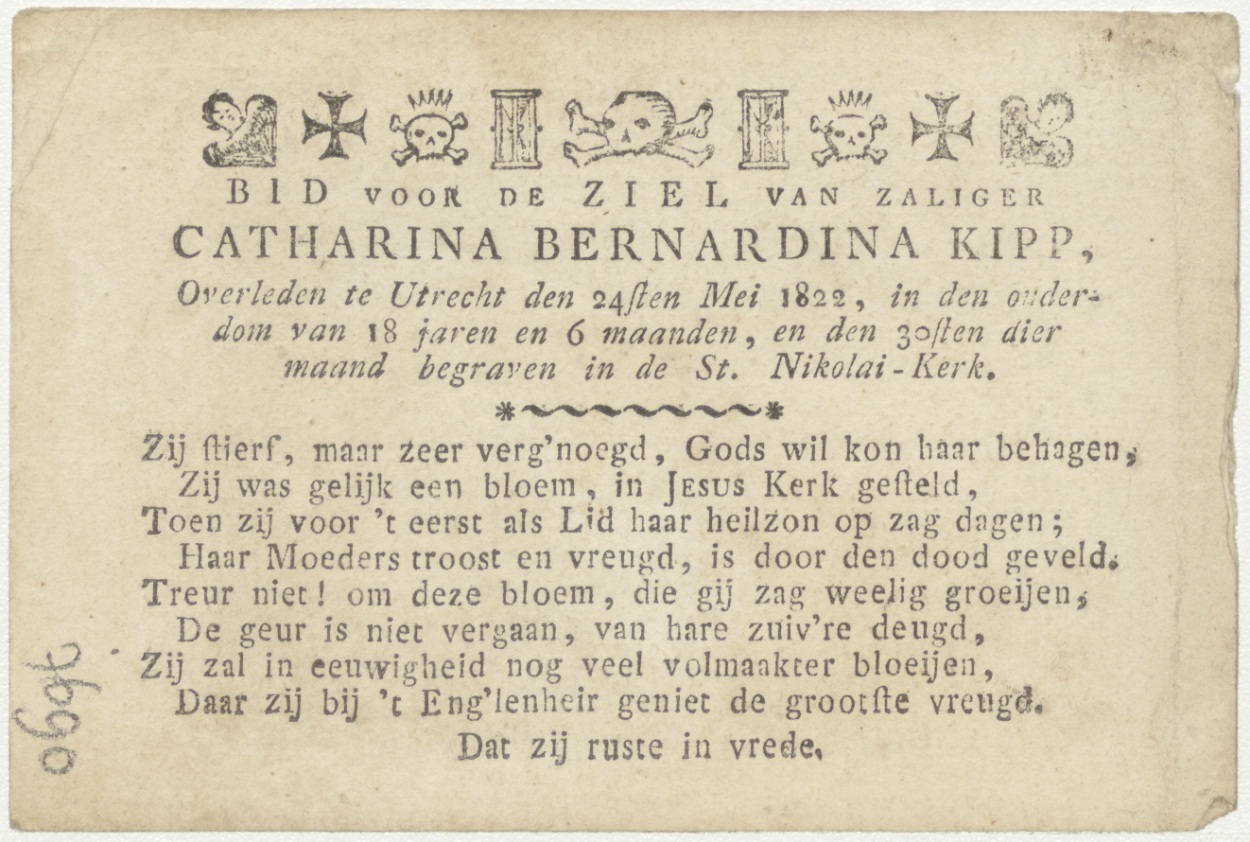 BID VOOR DE ZIEL VAN ZALIGER
CATHARINA BERNARDINA KIPP,
Overleden te Utrecht den 24sten Mei 1822, in den ouder-
dom van 18 jaren en 6 maanden, en den 30sten dier
maand begraven in de St. Nikolai-Kerk.
Zij stierf, maar zeer verg'noegd, Gods wil kon haar behagen,
Zij was gelijk een bloem, in JESUS Kerk gesteld,
Toen zij voor 't eerst als Lid haar heilzon op zag dagen;
Haar Moeders troost en vreugd, is door den dood geveld.
Treur niet! om deze bloem, die gij zag weelig groeijen,
De geur is niet vergaan, van hare zuiv're deugd,
Zij zal in eeuwigheid nog veel volmaakter bloeijen,
Daar zij bij 't Eng'lenheir geniet de grootste vreugd.
Dat zij ruste in vrede.